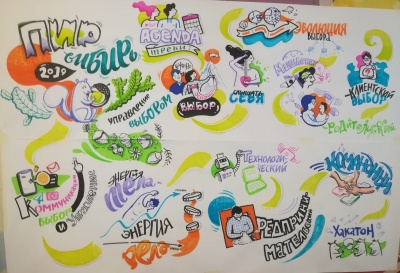 ПИР
СИБИРЬ
2019
AGENDA
ТРЕКИ
УПРАВЛЕНИЕ
ВЫБОРОМ
ВЫБОР
СЕБЯ
ЭВОЛЮЦИЯ
ВЫБОРА
КЛИЕНТСКИЙ
ВЫБОР
РОДИТЕЛЬСКИЙ
КОММУНИКАЦИИ
ВЫБОР
И
ЭНЕРГИЯ
ТЕЛА
ЭНЕРГИЯ
ДЕЛА
ТЕХНОЛОГИ-
ЧЕСКИЙ
ПРЕДПРИНИ-
МАТЕЛЬСКИЙ
КОМАНДНЫЙ
ХАКАТОН